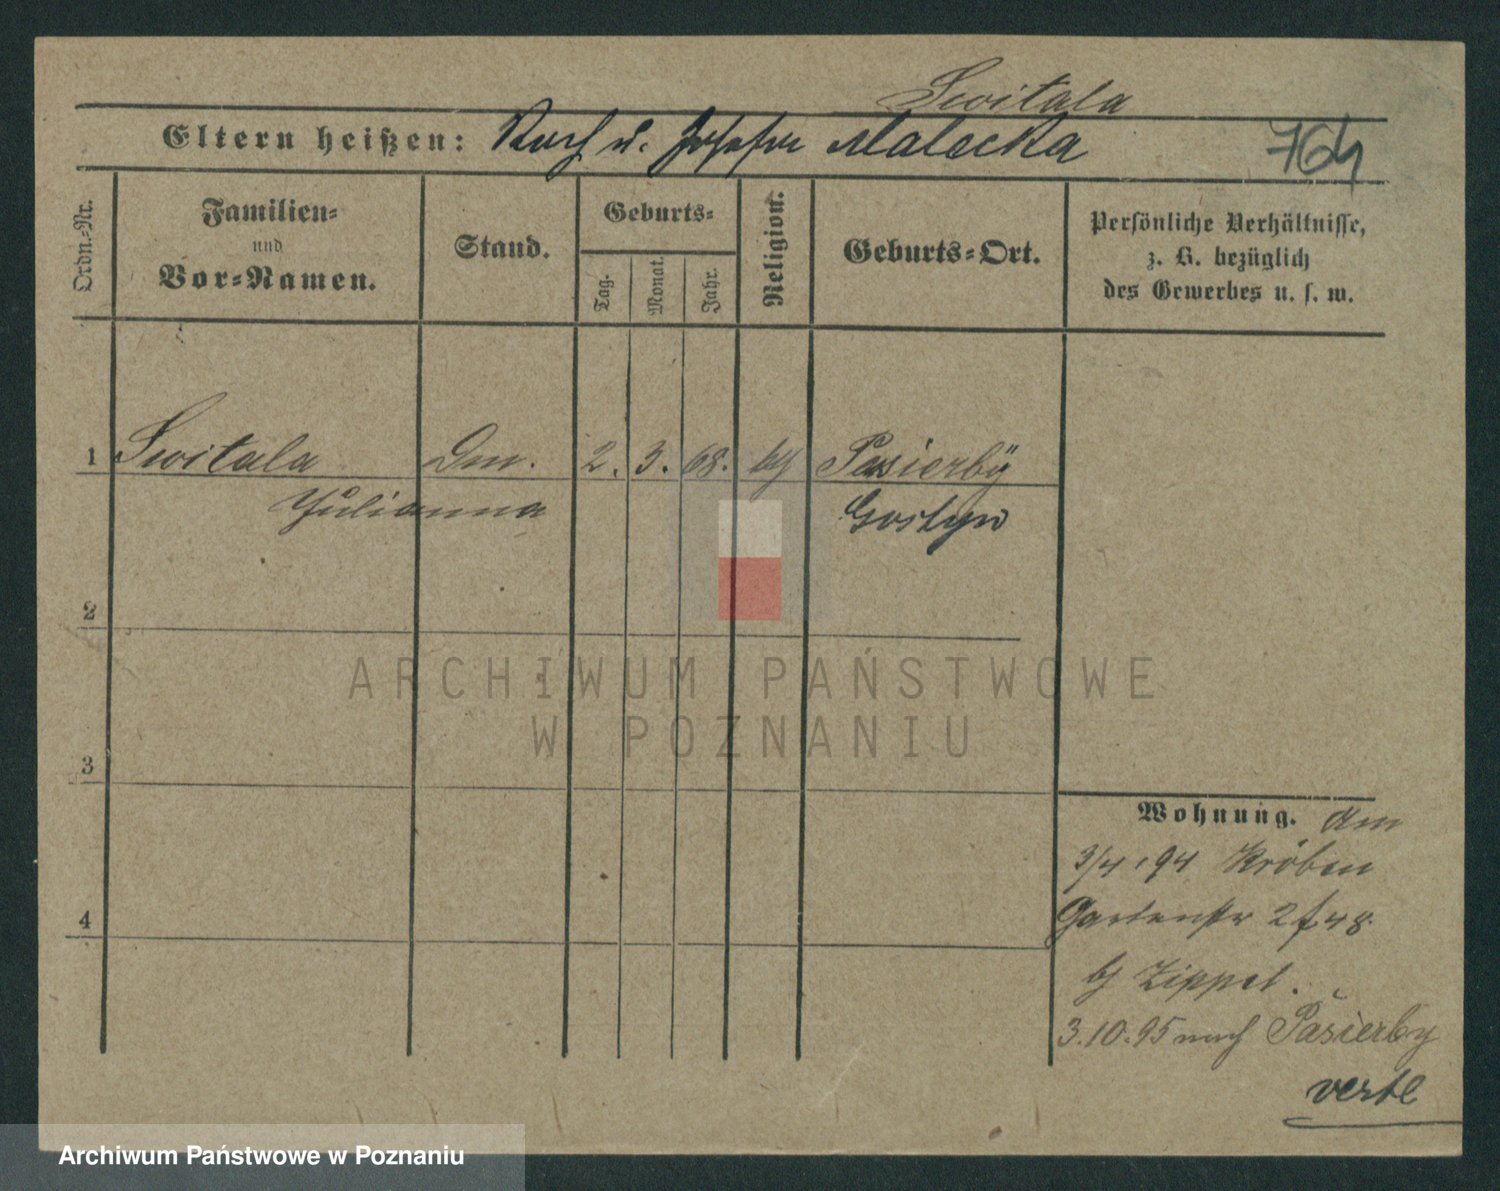 Switala
Eltern heißen: Roch u. Josefa Malecka
764
Ordn.-Nr.
Familien-
und
Vor-Namen.
Stand.
Geburts-
Tag.
Monat.
Jahr.
Religion.
Geburts-Ort.
Persönliche Verhältnisse,
z. B. bezüglich
des Gewerbes u. s. w.
1 Switala 2. 3. 68. Pasierby
Julianna Gostyn
2
3
4
Wohnung. Am
3/4 94 Kröben
Gartenstr 2
Zippel.
3.10.95 nach Pasierby
verte
ARCHIWUM PAŃSTWOWE
W POZNANIU
Archiwum Państwowe w Poznaniu